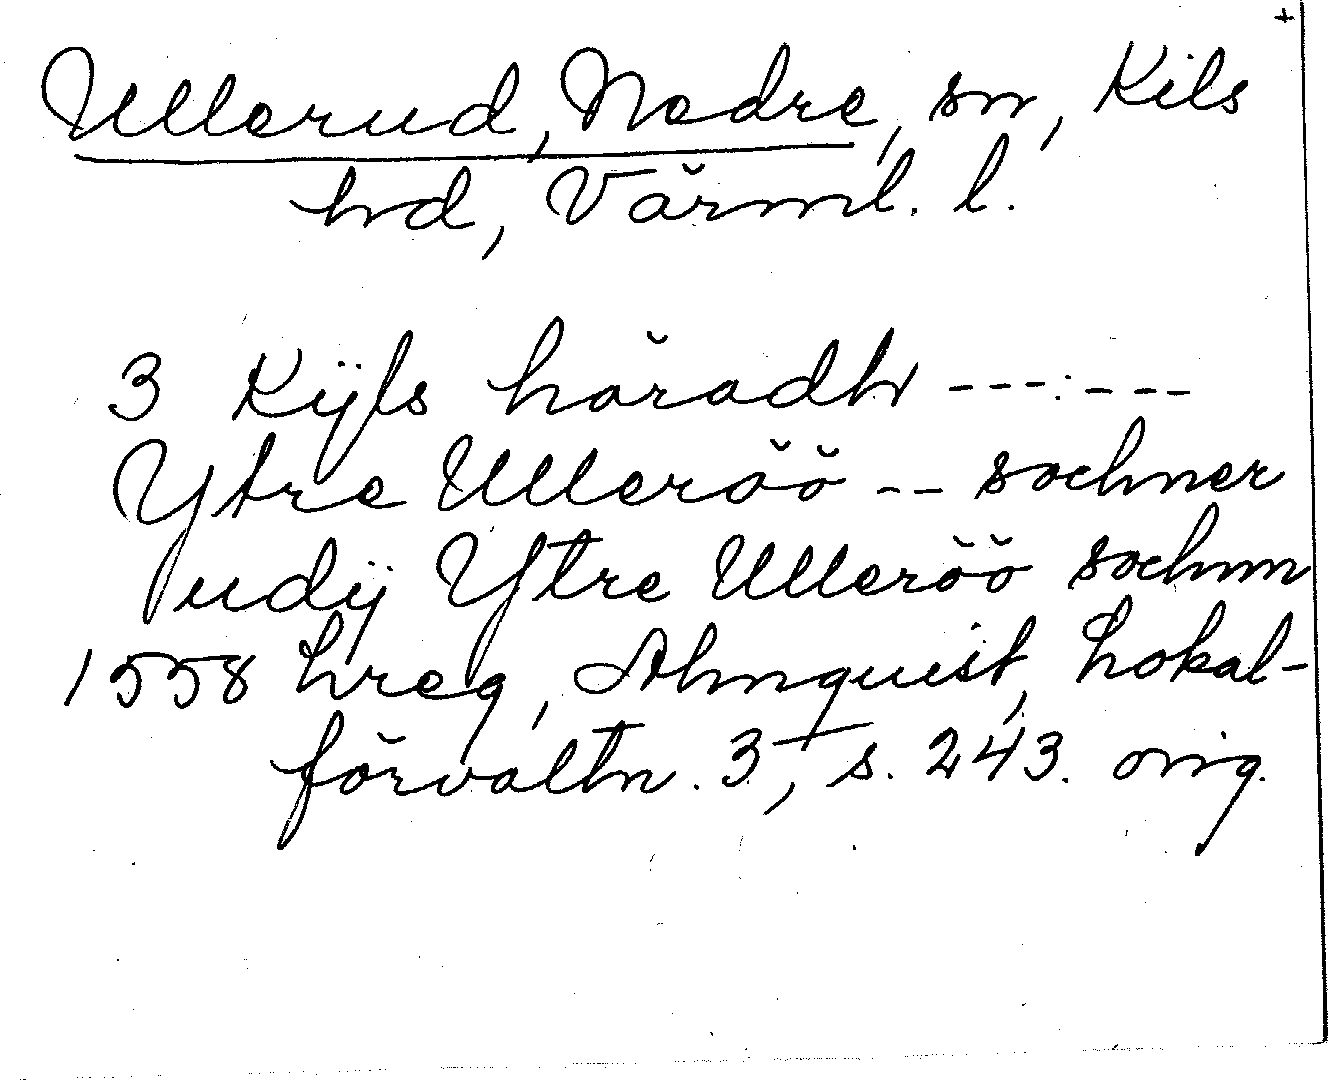 +
Ullerud, Nedre, sn, Kils
hd, Värml. l.
3 Kÿls häradh ---:---
Ytre Ulleröö -- sochner
udÿ Ytre Ulleröö sochnn
1558 Lreg, Almquist, Lokal-
förvaltn. 3, s. 243. orig.